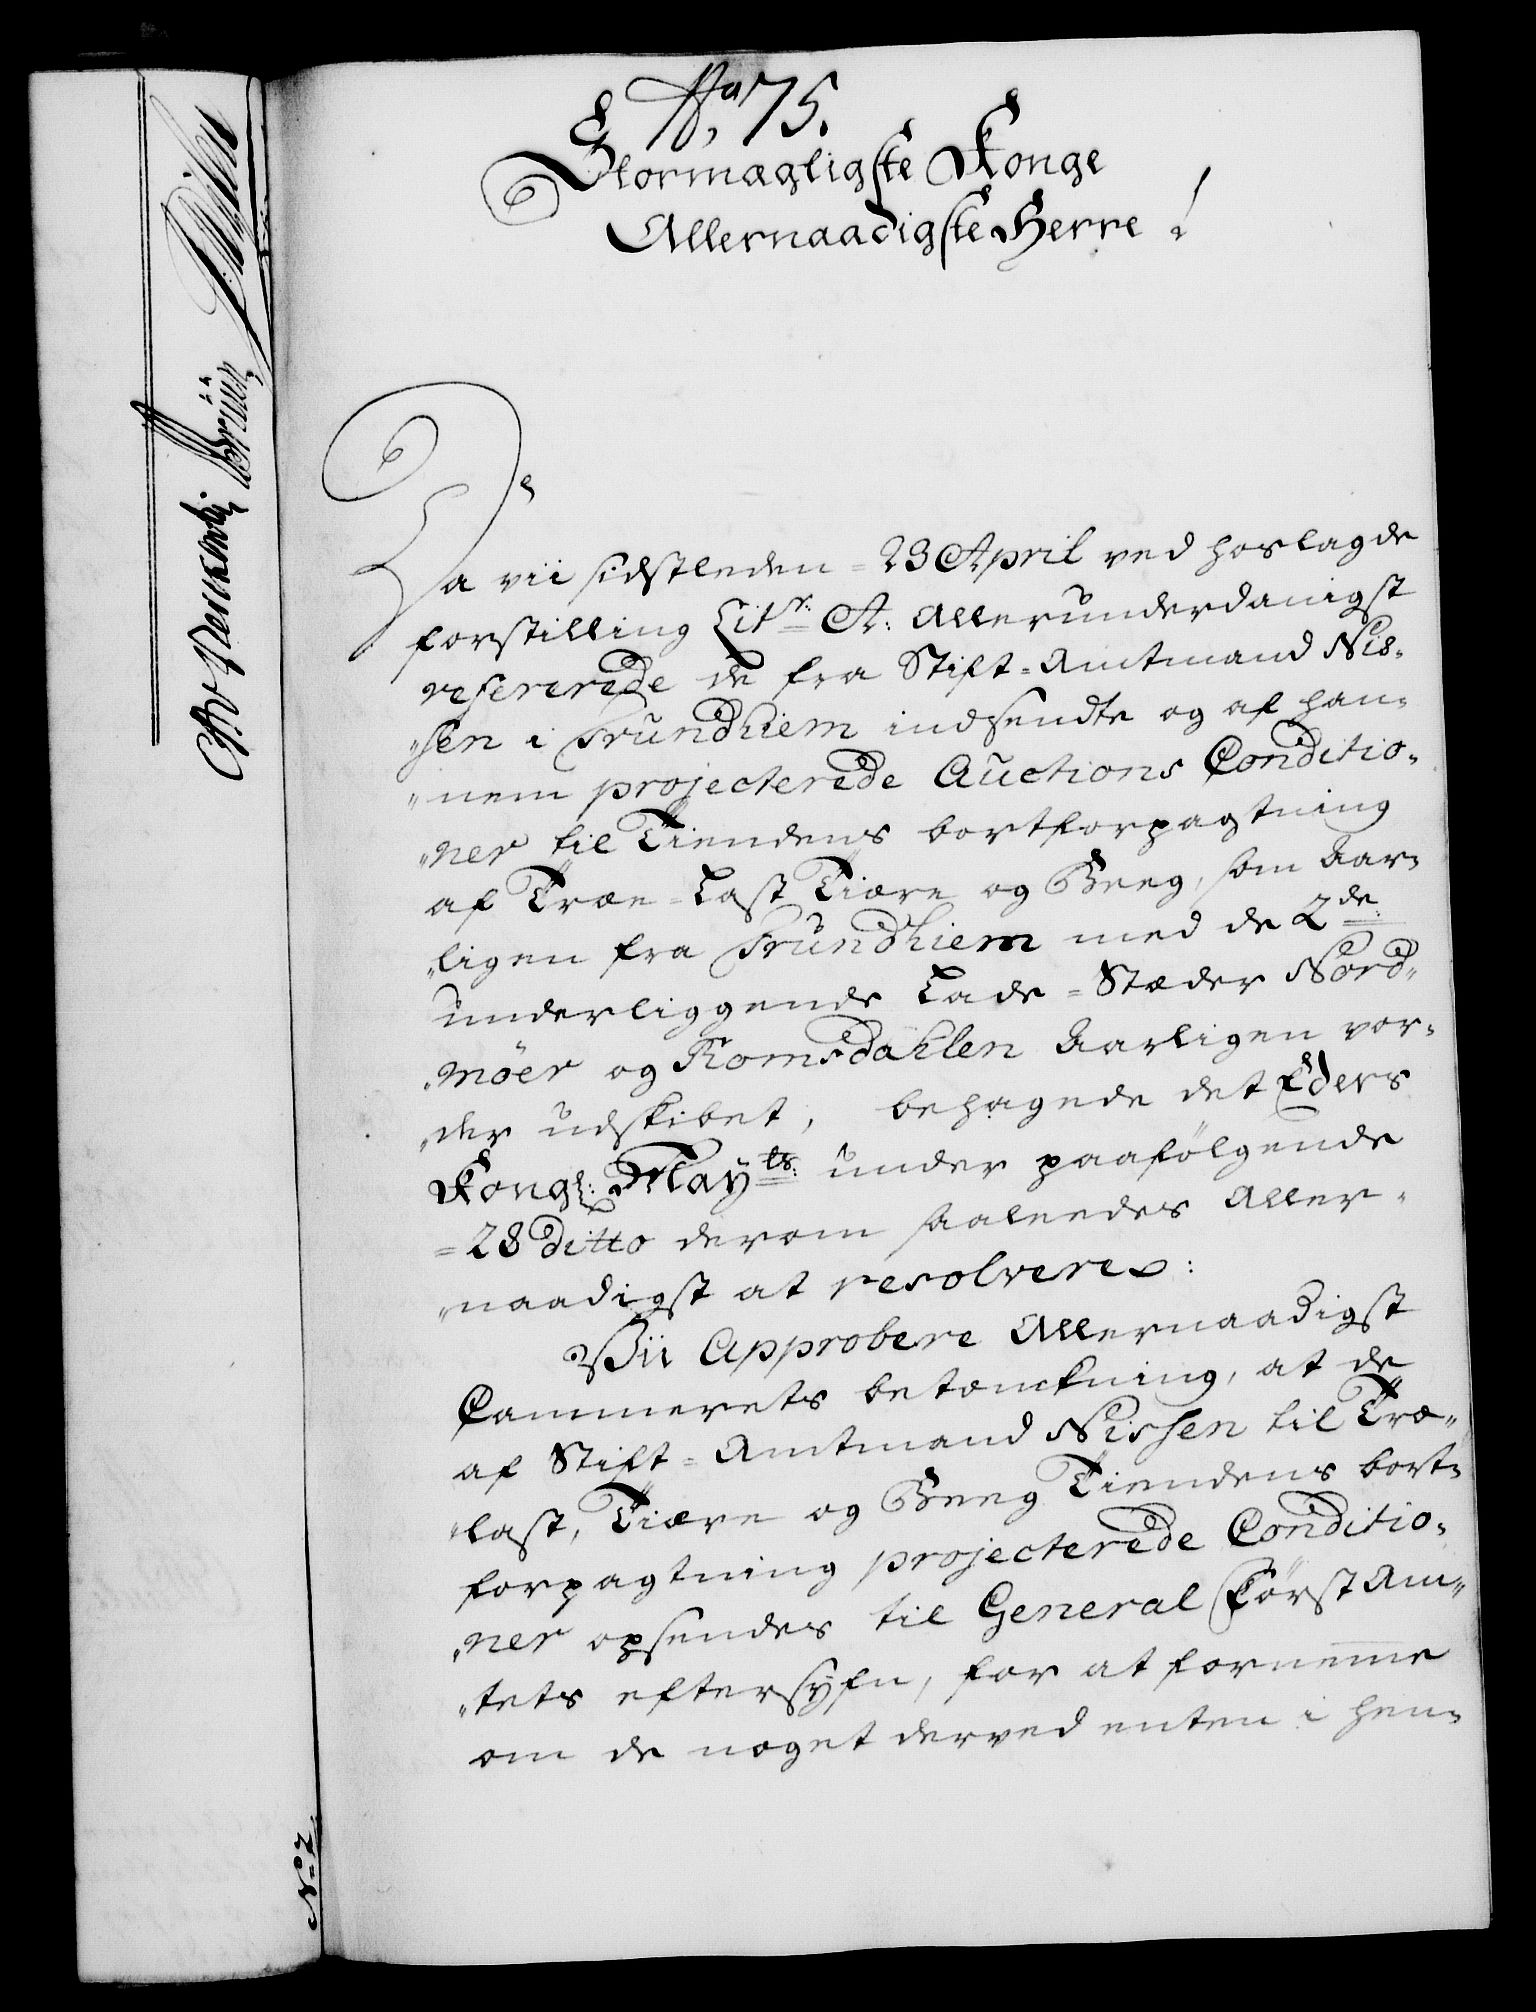 No. 75.
Stormægtigste Konge
Allernaadigste Herre!
Da vii sidstleden 23 April ved hoslagde
forstilling Litr: A: allerunderdanigst
refererede de fra Stift-Amtmand Nis-
"sen i Trundhiem indsendte og af han-
"nem projecterede Auctions Conditio-
"ner til Tiendens bortforpagtning
af Træe-Last Tiære og Beeg, som Aar-
"ligen fra Trundhiem med de 2de:
underliggende Lade-Stæder Nord-
"möer og Romsdahlen Aarligen vor-
"der udskibet, behagede det Eders
Kongl: Mayts: under paafölgende
28 ditto derom saaleedes Aller-
"naadigst at resolvere:
Vii Approbere Allernaadigst
Cammerets betænkning, at de
af Stift-Amtmand Nissen til Træ-
"last, Tiære og Beeg Tiendens bort-
forpagtning projecterede Conditio-
"ner opsendes til General Först Am-
"tets eftersyfn, for at fornemme
om de noget derved enten i hen-
No 2